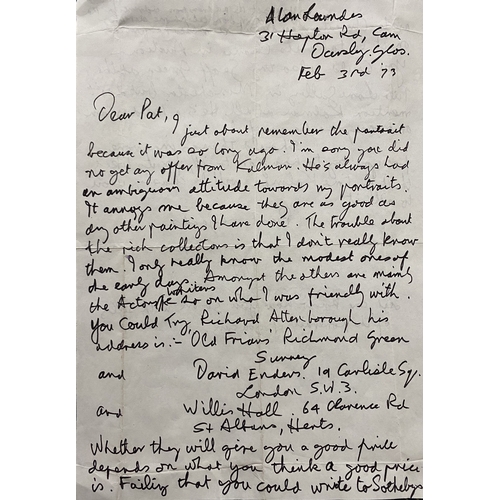 Alan Lowndes
31 Hopton Rd, Cam
Dursley. Glos.
Feb 3rd '73
Dear Pat, I
just about remember the portrait
because it was so long ago. I'm sorry you did
no get any offer from Kalman. He's always had
an ambiguous attitude towards my portraits.
It annoys me because they are as good as
any other paintings I have done. The trouble about
the rich collectors is that I don't really know
them. I only really know the modest ones of
the early days. Amongst the others are mainly
writers
the Actors &c so on what I was friendly with.
You could Try, Richard Attenborough his
address is:- 'Old Friars' Richmond Green
Surrey
and David Enders. 19 Carlisle Sq.
London S.W.3.
and Willis Hall. 64 Clarence Rd
St Albans, Herts.
Whether they will give you a good price
depends on what you think a good price
is. Failing that you could write to Sothebys